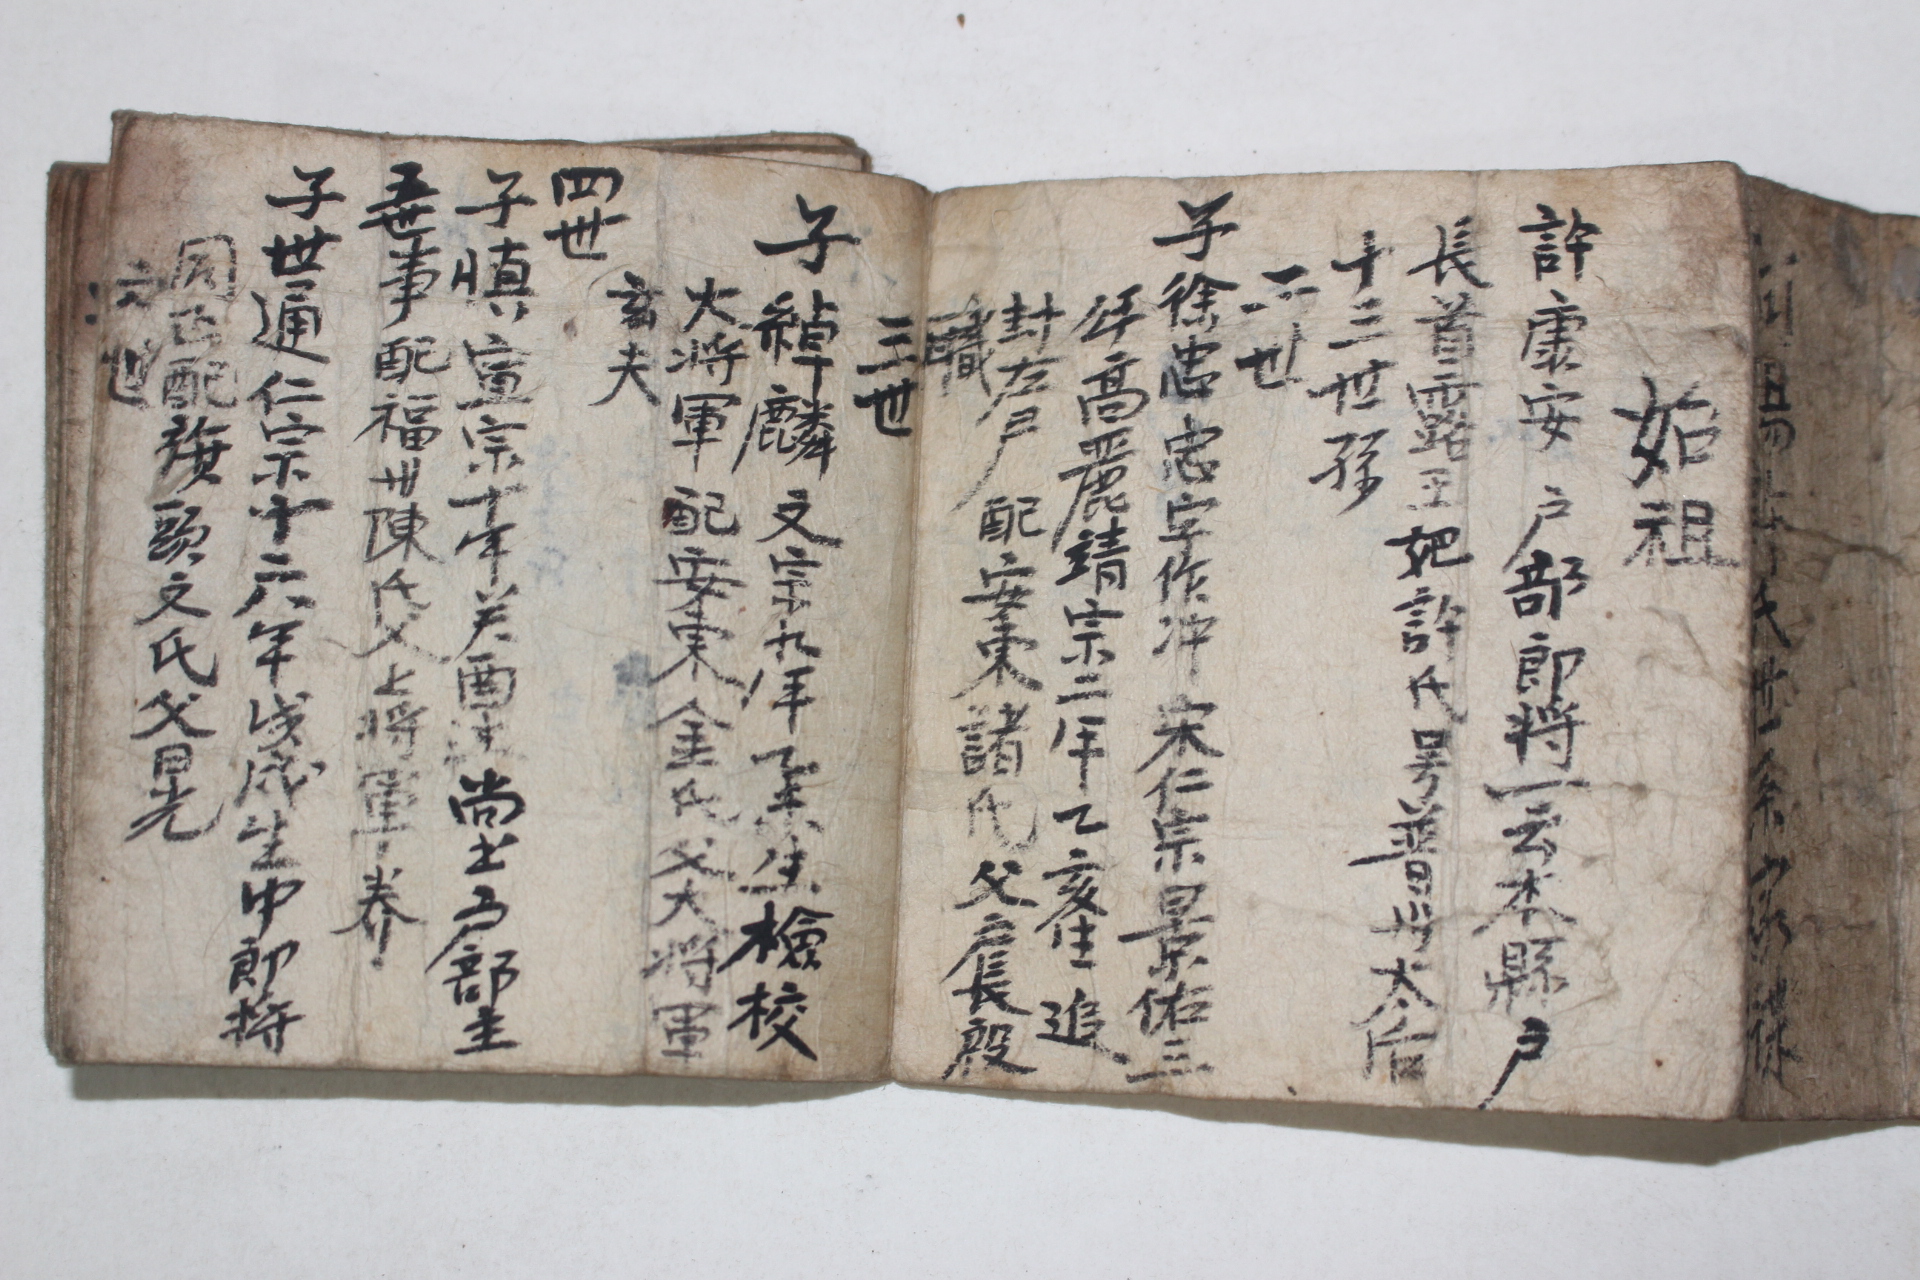 始祖
許康安 戶部郎將一云本縣戶
長首露王妃許氏号普州太后
十三世孫
二世
子徐忠忠字作冲宋仁宗景佑三
年高麗靖宗二年乙亥生追
封左戶 配安東諸氏父戶長殷
職
三世
子 麟文宗九年乙未生檢校
大將軍配安東金氏父大將軍
玄夫
四世
子愼宣宗十年癸酉生尙士戶部主
事配福州陳氏父上將軍養
五世
子世通仁宗十六年戊戌生中郎將
同正配 文氏父冒光
六世